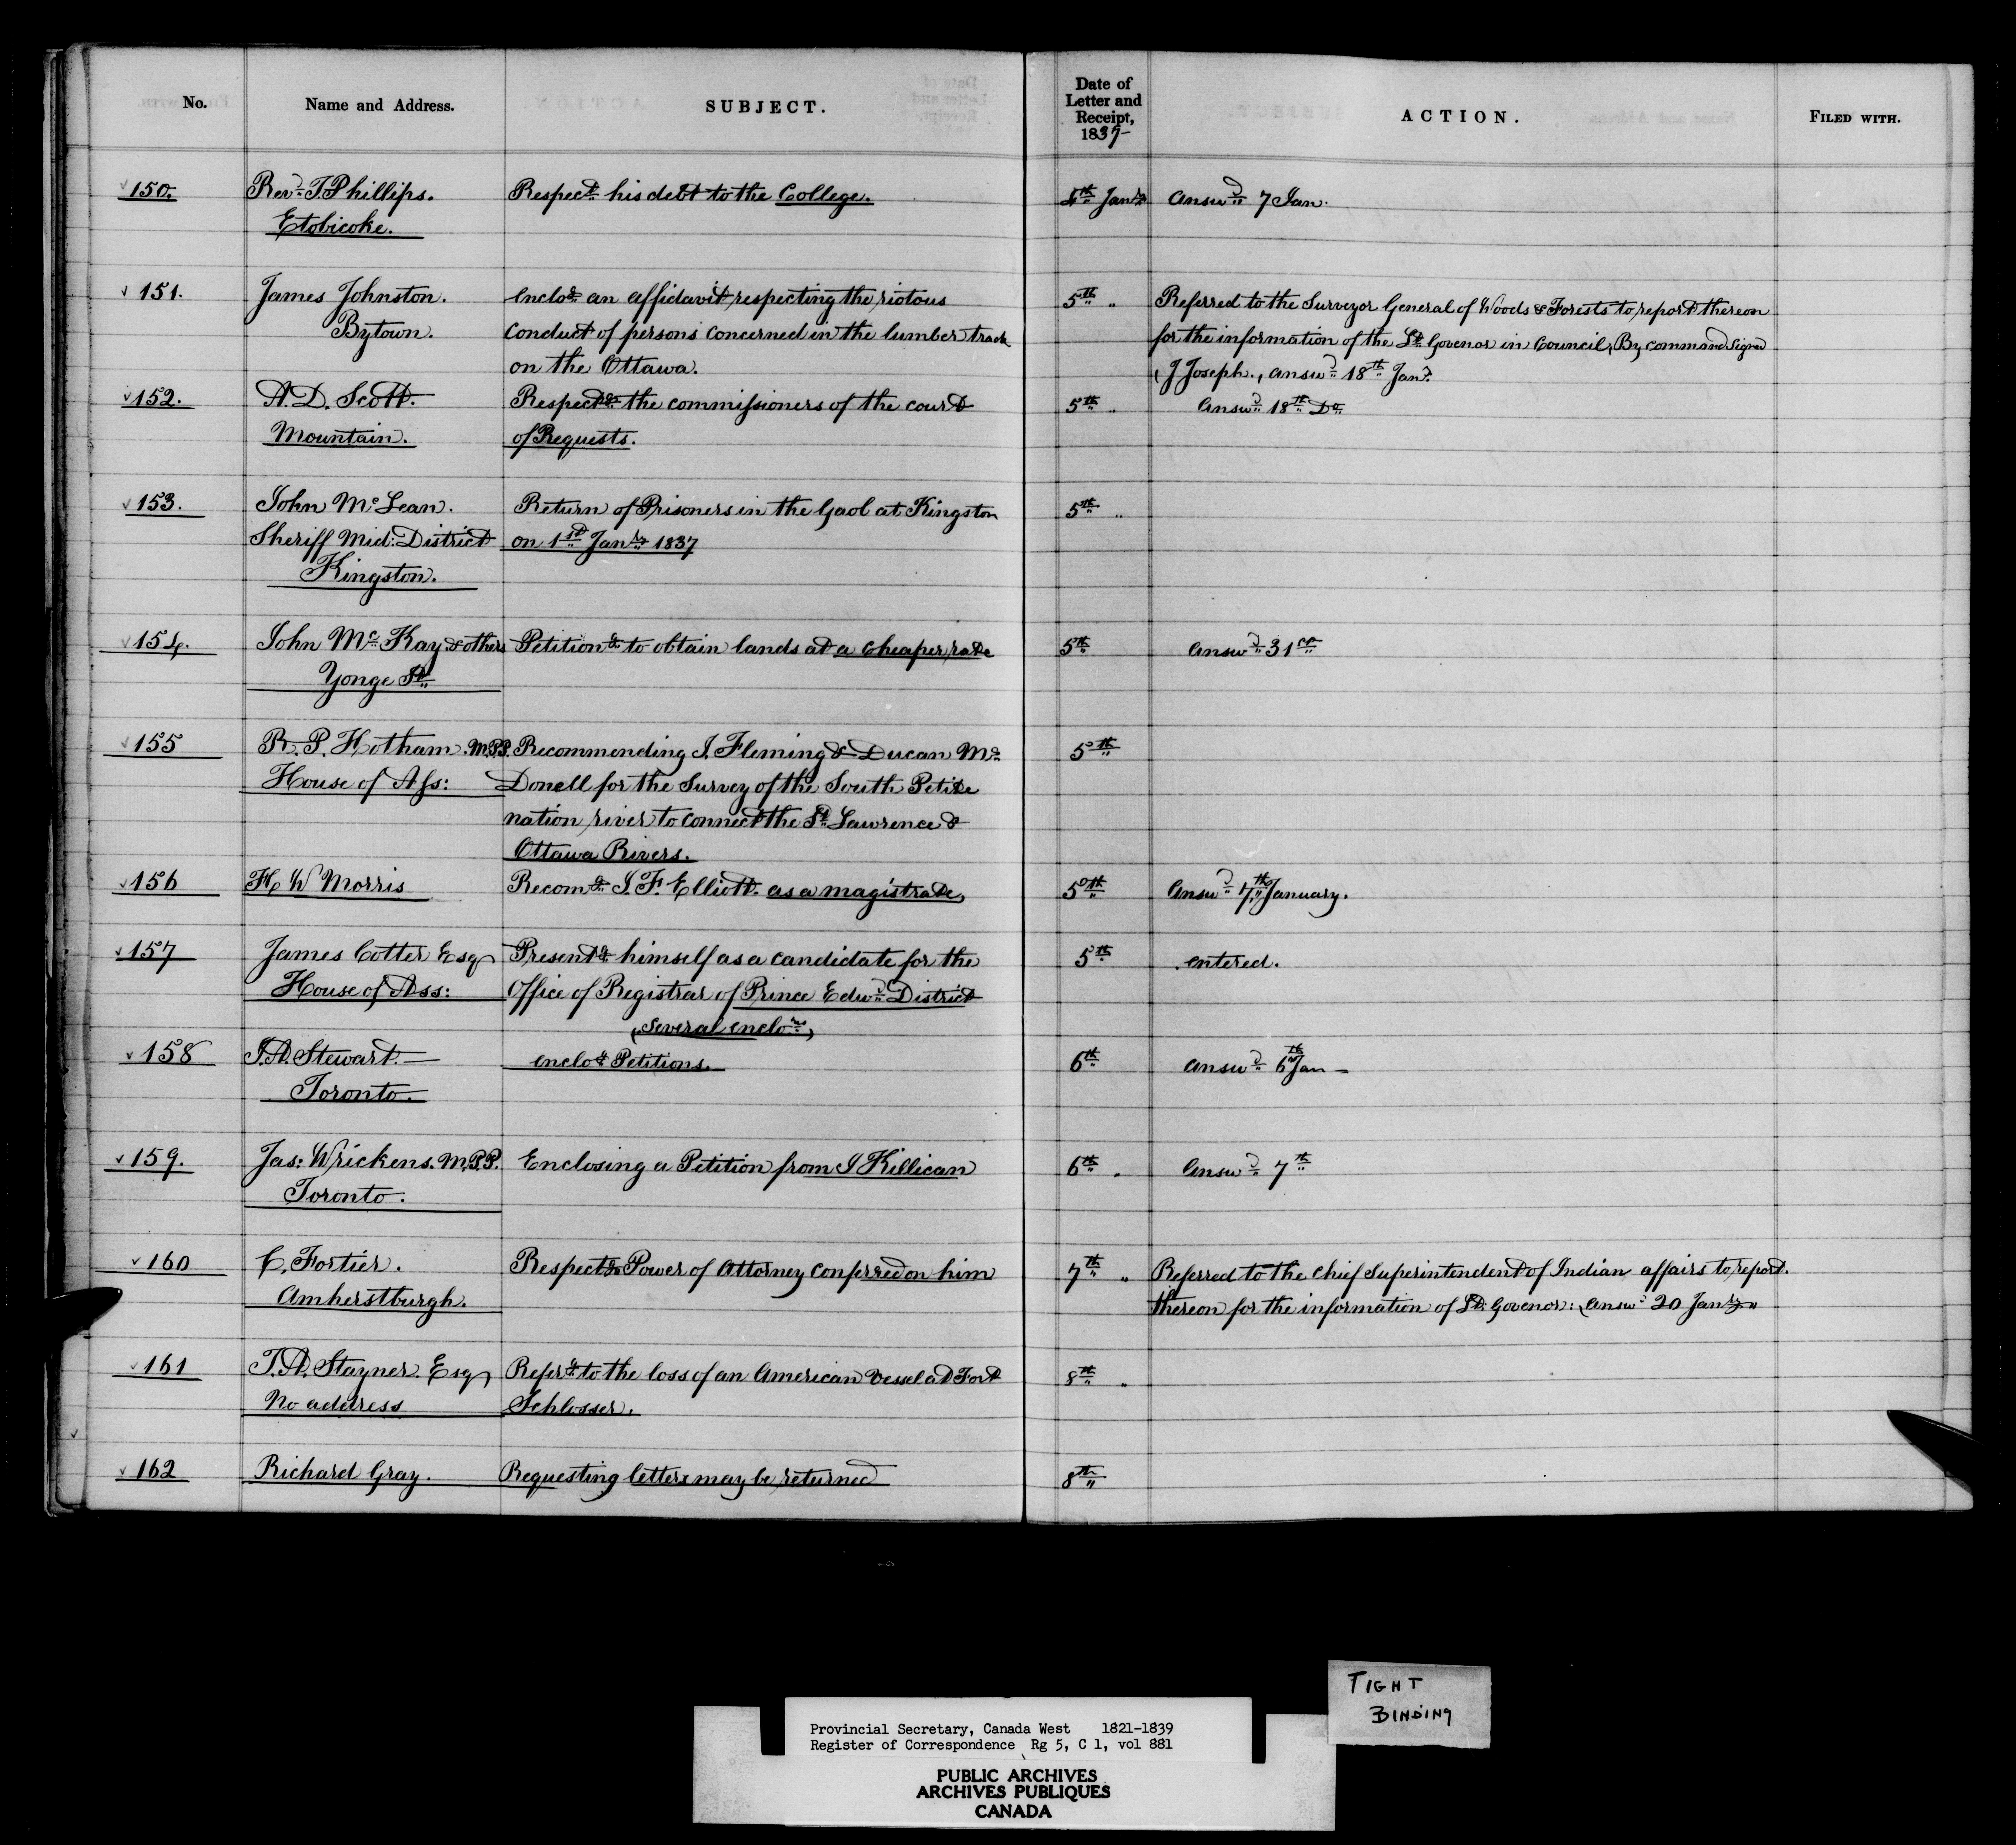 No. Name and Address. SUBJECT. Date of Letter and Receipt, 1837- ACTION. FILED WITH.
150. Revd. T. Phillips. Respecg. his debt to the College. 4th Jany. Answd. 7 Jan.
Etobicoke.
151. James Johnston. Enclog. an affidavit respecting the riotous 5th " Referred to the Surveyor General of Woods & Forests to report thereon
Bytown. conduct of persons concerned in the lumber trade for the information of the Lt. Govenor in Council, By command Signed
on the Ottawa. (J Joseph., answd. 18th Jany.
152. A. D. Scott. Respectg. the commissioners of the court 5th " Answd. 18th Do.
Mountain. of Requests.
153. John McLean. Return of Prisoners in the Gaol at Kingston 5th "
Sheriff Mid: District on 1st Jany. 1837
Kingston.
154. John McKay & others Petitiong. to obtain lands at a cheaper rate 5th Answd. 31st
Yonge St.
155 R. P. Hotham. M.P.P. Recommending J. Fleming & Ducan Mc 5th
House of Ass: Donell for the Survey of the South Petite
nation river to connect the St. Lawrence &
Ottawa Rivers.
156 H W Morris Recomg. J. F. Elliott. as a magistrate, 5th Answd. 7th January.
157 James Cotter Esq Presentg. himself as a candidate for the 5th entered.
House of Ass: Office of Registrar of Prince Edwd. District
(Several enclores.)
158 T.A. Stewart. — enclog. Petitions. 6th answd. 6th Jan —
Toronto.
159. Jas: Wrickens. M.P.P. Enclosing a Petition from J Killican 6th " Answd. 7th
Toronto.
160 C. Fortier. Respectg. Power of Attorney conferred on him 7th " Referred to the Chief Superintendent of Indian affairs to report.
Amherstburgh. thereon for the information of Lt. Govenor: (Answd. 20 Jany.
161 T.A. Stayner. Esq Referg. to the loss of an American Vessel at Fort 8th "
No address Schlosser.
162 Richard Gray. Requesting letters may be returned 8th "
TIGHT
BINDING
Provincial Secretary, Canada West 1821-1839
Register of Correspondence Rg 5, C 1, vol 881
PUBLIC ARCHIVES
ARCHIVES PUBLIQUES
CANADA